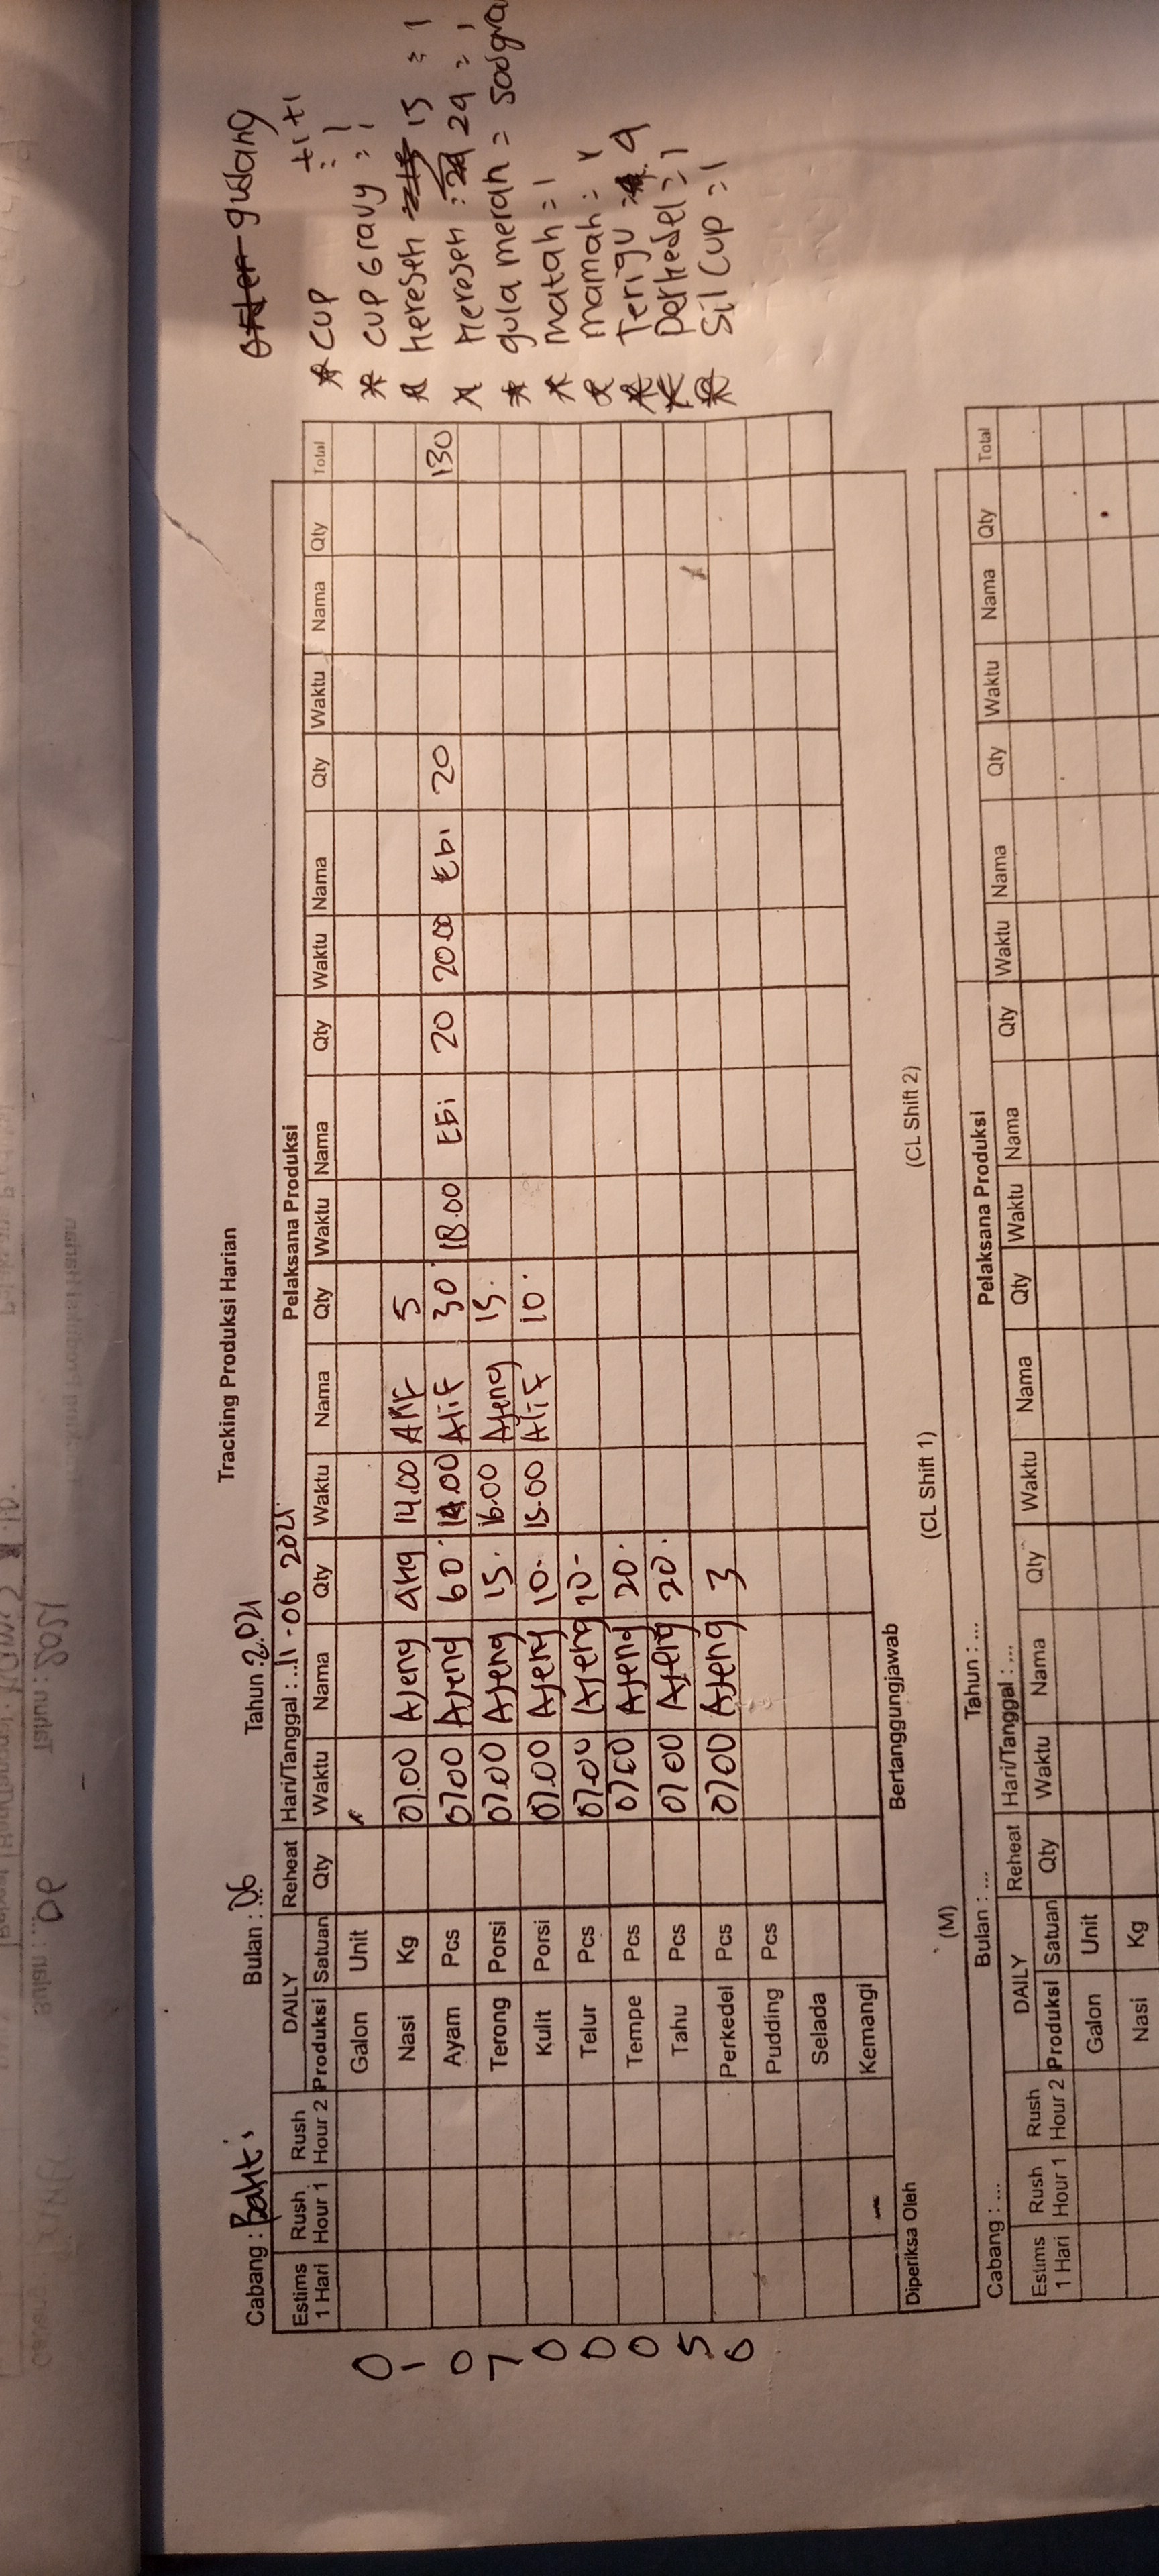 Tracking Produksi Harian
Cabang : Bakti Bulan : 06 Tahun : 2021
DAILY Reheat Hari/Tanggal : 11-06 2021 Pelaksana Produksi
Estims 1 Hari Rush Hour 1 Rush Hour 2 Produksi Satuan Qty Waktu Nama Qty Waktu Nama Qty Waktu Nama Qty Waktu Nama Qty Waktu Nama Qty Total
0 Galon Unit
1 Nasi Kg 07.00 Ajeng 4kg 14.00 5
0 Ayam Pcs 07.00 Ajeng 60 14.00 Alif 30 18.00 Ebi 20 20.00 Ebi 20 130
7 Terong Porsi 07.00 Ajeng 15. 16.00 Ajeng 15.
0 Kulit Porsi 07.00 Ajeng 10. 15.00 Alif 10.
0 Telur Pcs 07.00 Ajeng
0 Tempe Pcs 07.00 Ajeng 20.
5 Tahu Pcs 07.00 Ajeng 20.
0 Perkedel Pcs 07.00 Ajeng 3
Pudding Pcs
Selada
Kemangi
Diperiksa Oleh Bertanggungjawab
(M) (CL Shift 1) (CL Shift 2)
gudang
* CUP = 1 +1+1
* CUP Gravy = 1
* kresek 15 = 1
* kresek 24 = 1
* gula merah =
* matah = 1
* mamah =
* Terigu = 9
* perkedel = 1
* Sil Cup = 1
Cabang : ... Bulan : ... Tahun : ...
DAILY Reheat Hari/Tanggal : ... Pelaksana Produksi
Estims 1 Hari Rush Hour 1 Rush Hour 2 Produksi Satuan Qty Waktu Nama Qty Waktu Nama Qty Waktu Nama Qty Waktu Nama Qty Waktu Nama Qty Total
Galon Unit
Nasi Kg